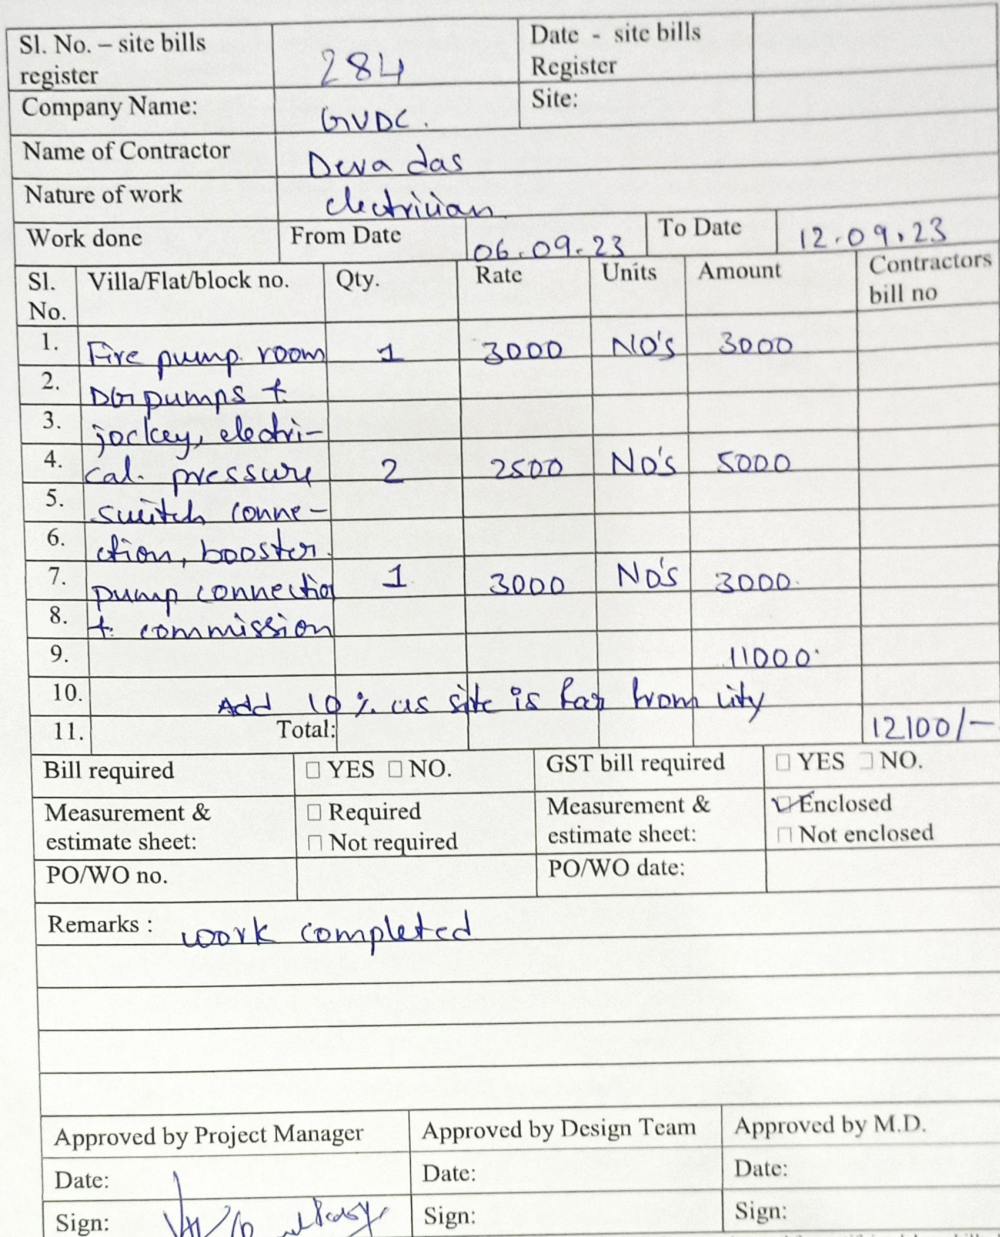 Sl. No. – site bills register 284 Date - site bills Register
Company Name: GVDC. Site:
Name of Contractor Deva das
Nature of work electrician
Work done From Date 06.09.23 To Date 12.09.23
Sl. No. Villa/Flat/block no. Qty. Rate Units Amount Contractors bill no
1. Fire pump room 1 3000 NO's 3000
2. DG pumps +
3. jockey, electri-
4. cal. pressure 2 2500 No's 5000
5. switch conne-
6. ction, booster.
7. pump connection 1 3000 No's 3000.
8. +. commission
9. 11000.
10. Add 10% as site is far from city
11. Total: 12100/-
Bill required □ YES □ NO. GST bill required □ YES □ NO.
Measurement & □ Required Measurement & ☑ Enclosed
estimate sheet: □ Not required estimate sheet: □ Not enclosed
PO/WO no. PO/WO date:
Remarks : work completed
Approved by Project Manager Approved by Design Team Approved by M.D.
Date: Date: Date:
Sign: Sign: Sign: